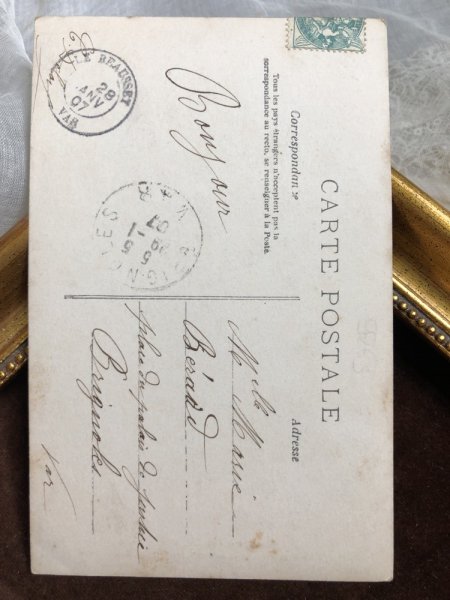 CARTE POSTALE
Correspondance
Tous les pays étrangers n'acceptent pas la
correspondance au recto, se renseigner à la Poste.
Bonjour
LE BEAUSSET
28
JANV
07
VAR
BRIGNOLES
5
29-1
07
VAR
Adresse
Mlle Marie
Béraud
place du palais de justice
Brignoles
Var